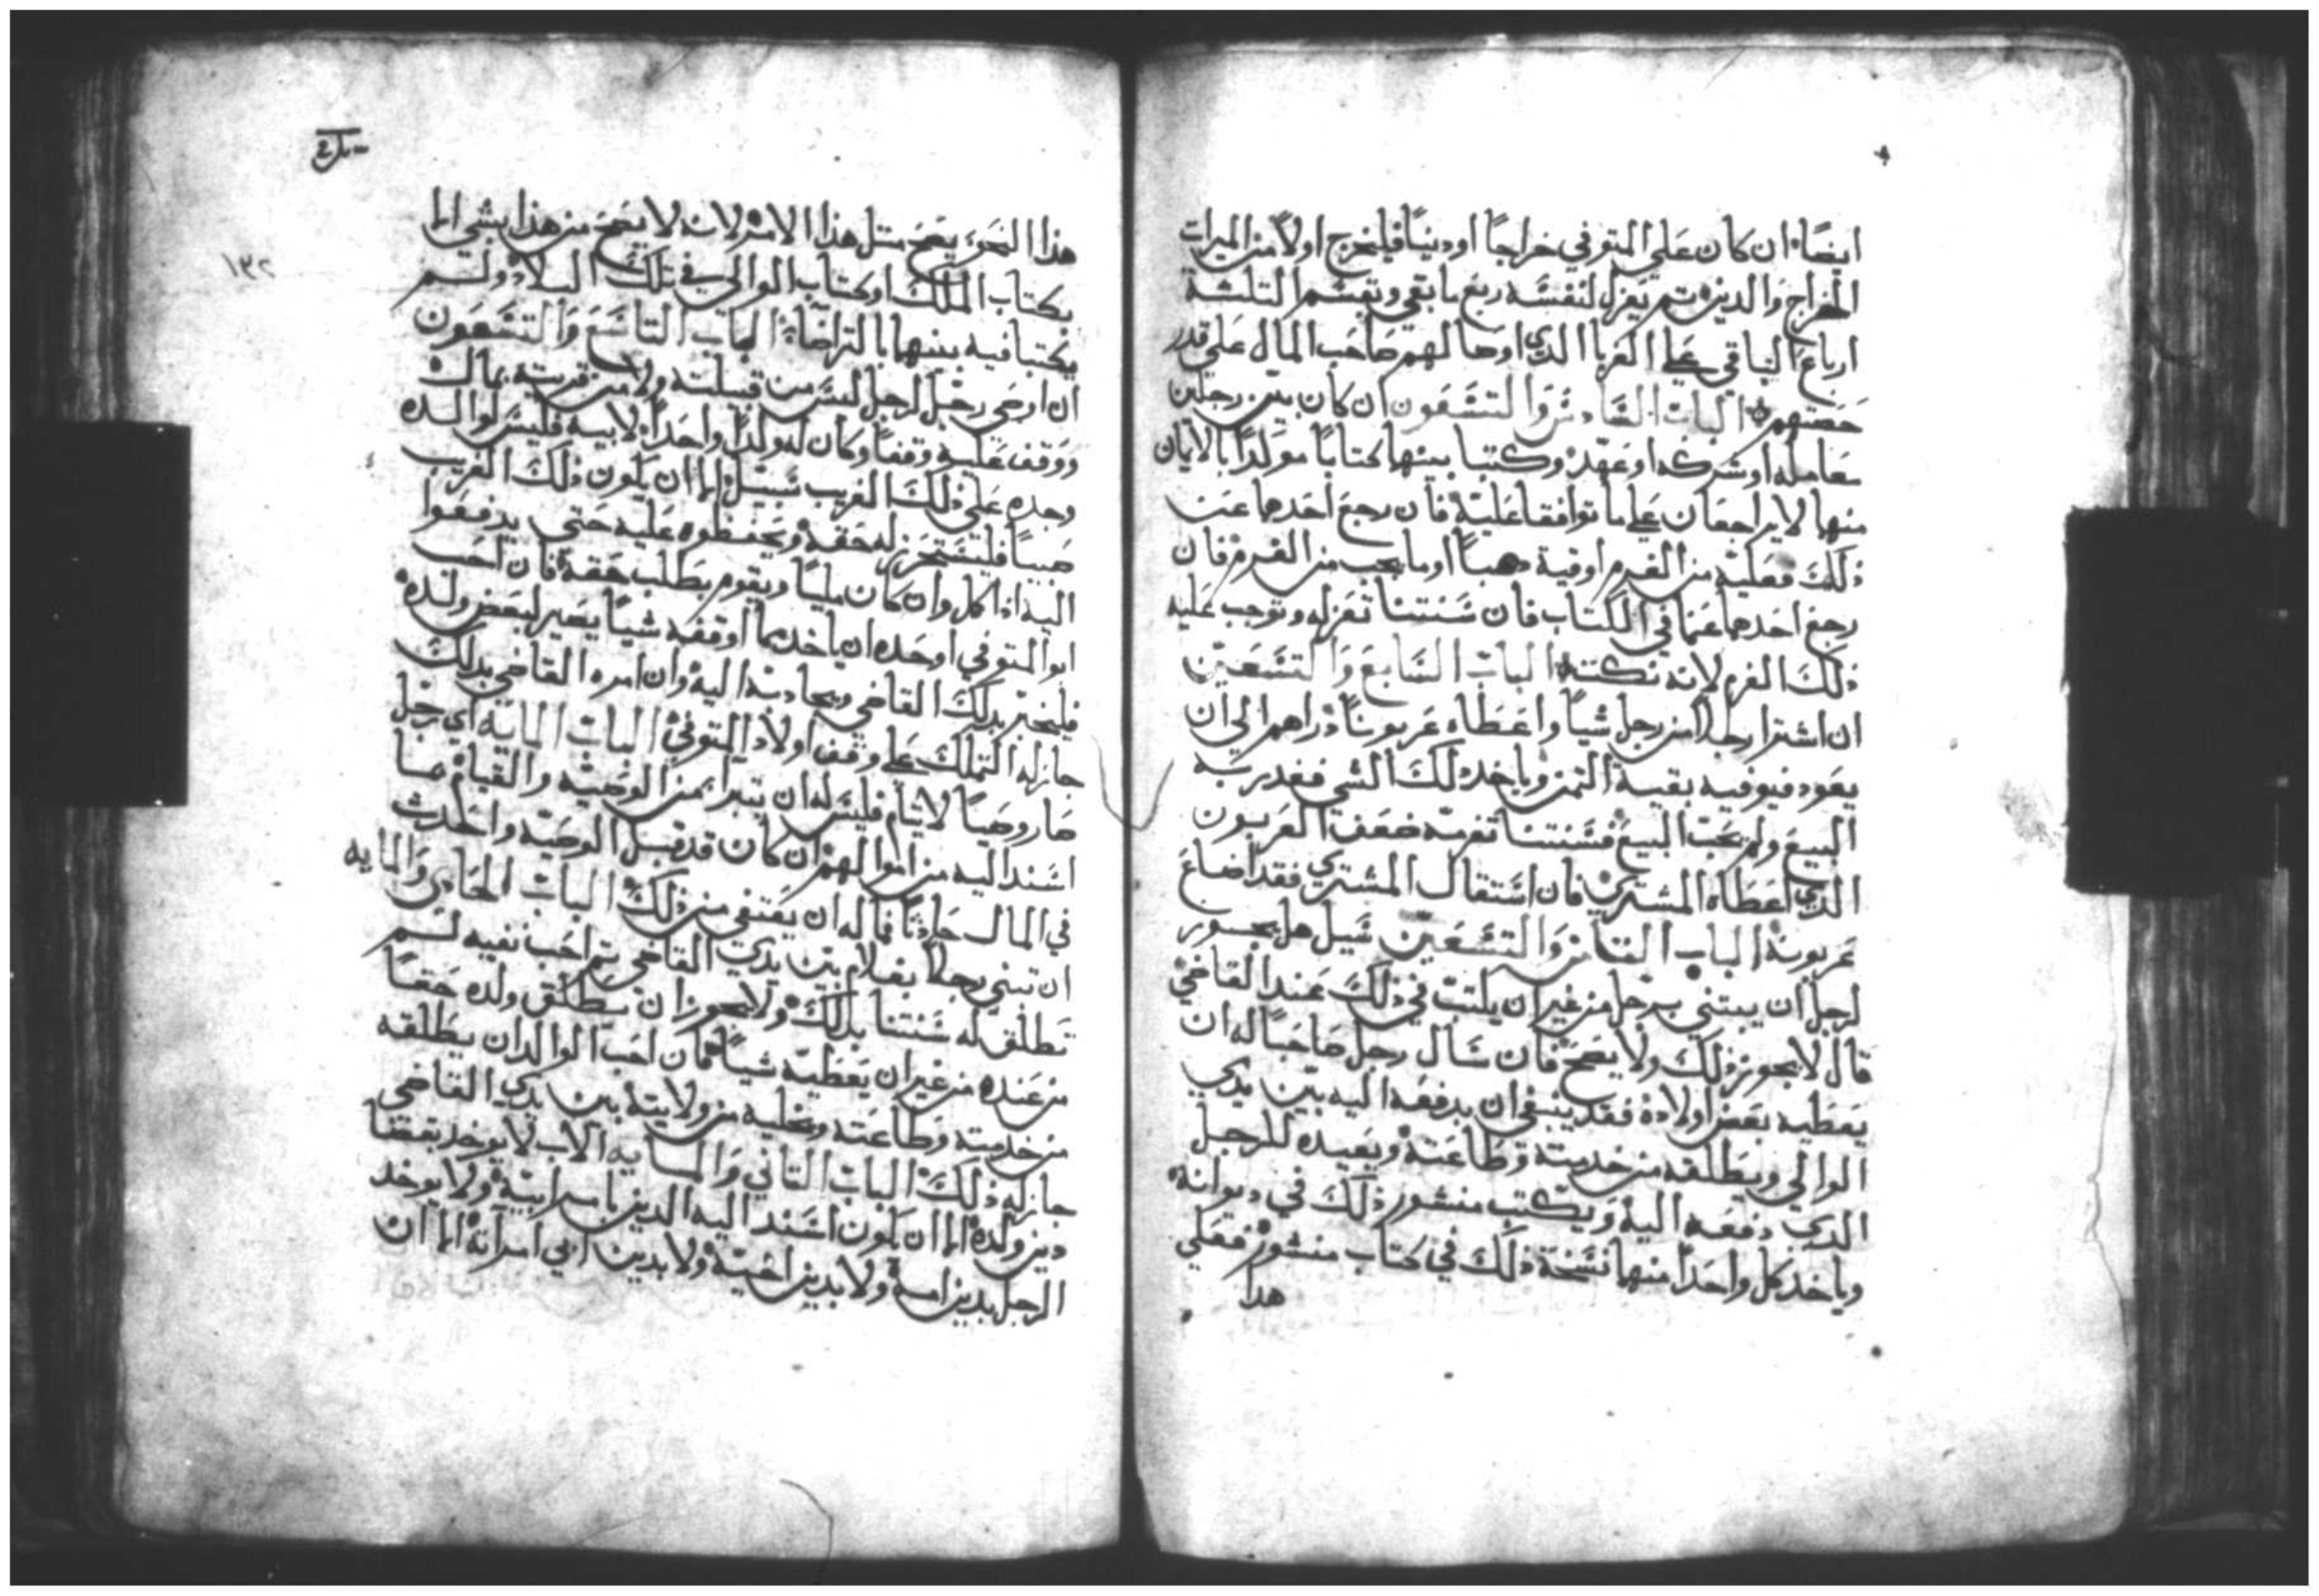 ايضًا ان كان علي المتوفي خراجًا او دينًا فليخرج اولاً من الميرات
الخراج والدين تم يعزل لنفسه ربع ما بقي ويقسم التلتة
ارباع الباقي علي الغربا الدي اوصا لهم صاحب المال علي قدر
حصتهم الباب السادس والتسعون ان كان بين رجلين
معاملة او شركه او عهد وكتبا بينهما كتابًا موكدًا بالايمان
منهما لا يراجعان علي ما توافقا عليه فان رجع احدهما عن
ذلك فعليه من الغرم اوقية دهبًا او ما يجب من الغرم فان
رجع احدهما عما في الكتاب فان سنتنا تغرمه وتوجب عليه
ذلك الغرم لانه نكته الباب السابع والتسعين
ان اشترا رجلاً من رجل شيًا واعطاه عربونًا دراهم الي ان
يعود فيوفيه بقية التمن وياخد ذلك الشي فغدر به
البيع ولم يجب البيع فسنتنا تغرمه ضعف العربون
الدي اعطاه المشتري فان استقال المشتري فقد اضاع
عربونه الباب التامن والتسعين سيل هل يجوز
لرجل ان يبتني برجل من غير ان يكتب في ذلك عند القاضي
قال لا يجوز ذلك ولا يصح فان سال رجل صاحبًا له ان
يعطيه بعض اولاده فقد ينبغي ان يدفعه اليه بين يدي
الوالي ويطلقه من خدمته وطاعته ويعيده للرجل
الدي دفعه اليه ويكتب منشور ذلك في ديوانه
وياخد كل واحدًا منهما نسخة ذلك في كتاب منشور فعلي
هدا
١٣٢
هذا النحو يصح متل هذا الامر لانه لا يصح من هذا بشي الا
بكتاب الملك او كتاب الوالي في تلك البلاد ولم
يكتبا فيه بينهما بالتراضا الباب التاسع والتسعون
ان اوصي رجل لرجل ليس من قبيلته ولا من قريته بمال
ووقف عليه وقفًا وكان له ولدًا واحدًا لابيه فليس لوالده
وجده علي ذلك الغريب سبيل الا ان يكون ذلك الغريب
صبيًا فليستحرز له حقه ويحفظوه عليه حتي يدفعوا
اليه ادا كمل وان كان مليًا ويقوم بطلب حقه فان احب
ابو المتوفي او جده ان ياخد مما اوقفه شيًا يصير لبعض ولده
فليخبر بدلك القاضي ويجادبه اليه وان امره القاضي بدلك
جاز له التملك علي وقف اولاد المتوفي الباب الماية اي رجل
صار وصيًا لايتام فليس له ان يتبرا من الوصيه والقيام بما
اسند اليه من اموالهم ان كان قد قبل الوصيه واحدت
في المال حادثًا فما له ان يعتفي من ذلك الباب الحادي والمايه
ان تبني رجلاً بغلام بين يدي القاضي تم احب نفيه لم
تطلق له سنتنا بدلك ولا يجوز ان يطلق ولده حقًا
من عنده من غير ان يعطيه شيًا فان احب الوالد ان يطلقه
من خدمته وطاعته ويخليه من ولايته بين يدي القاضي
جاز له ذلك الباب التاني والمايه الاب لا يوخد بقضا
دين ولده الا ان يكون اسند اليه الدين بامر ابيه ولا يوخد
الرجل بدين امه ولا بدين اخيه ولا بدين ابي امراته الا ان